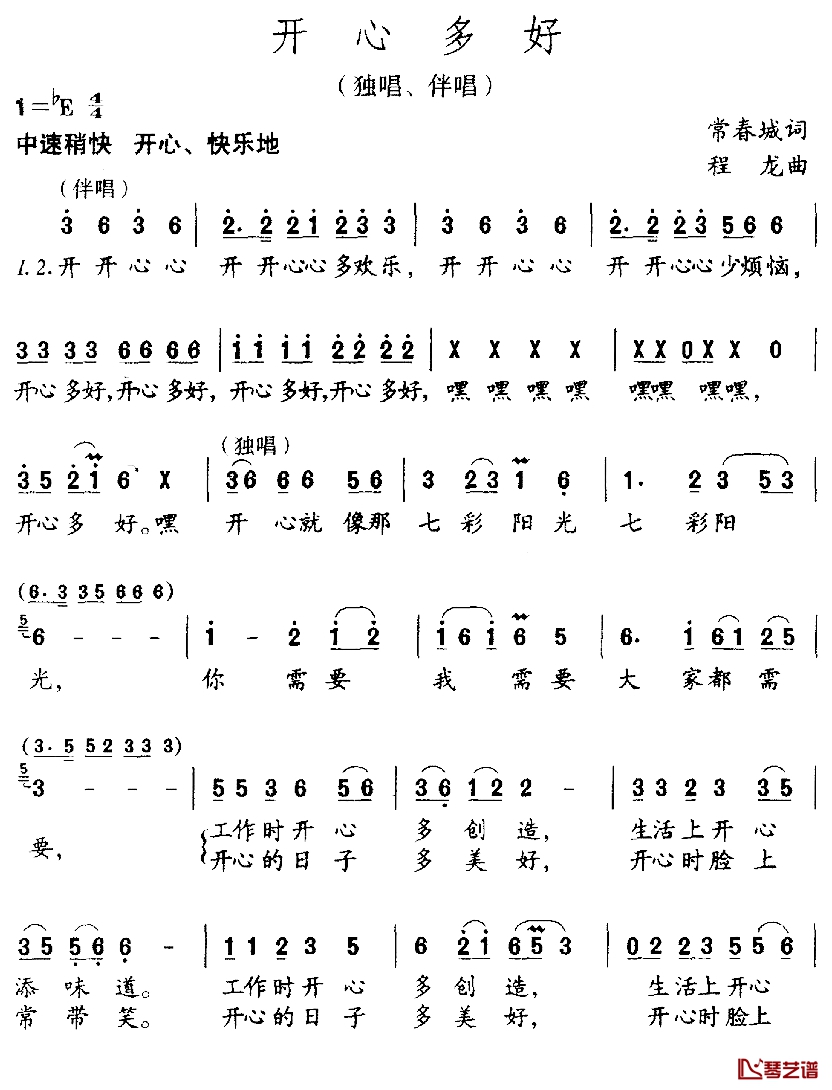 开心多好
（独唱、伴唱）
1=♭E 4/4
中速稍快 开心、快乐地
常春城词
程 龙曲
（伴唱）
3̇ 6 3̇ 6 | 2̇. 2̇ 2̇1̇ 2̇3̇ 3̇ | 3̇ 6 3̇ 6 | 2̇. 2̇ 2̇3̇ 56 6 |
1.2.开 开 心 心 开 开心心 多欢乐， 开 开 心 心 开 开心心 少烦恼，
33 33 66 66 | 1̇1̇ 1̇1̇ 2̇2̇ 2̇2̇ | X X X X | XX 0X X 0 |
开心多好,开心多好， 开心多好,开心多好， 嘿 嘿 嘿 嘿 嘿嘿 嘿嘿，
（独唱）
3̇5 2̇1̇ 6 X | 36 66 56 | 3 23 1 6̣ | 1. 2 3 53 |
开心多 好。嘿 开 心就 像那 七 彩 阳 光 七 彩阳
(6. 3 35 66 6)
5 6 - - - | 1̇ - 2̇ 1̇2̇ | 1̇61̇ 6 5 | 6. 1̇ 61̇ 2̇5 |
光， 你 需 要 我 需 要 大 家都 需
(3. 5 52 33 3)
5 3 - - - | 55 36 56 | 36̣ 12 2 - | 33 23 35 |
要， 工作时开 心 多 创 造， 生活上开 心
开心的日 子 多 美 好， 开心时脸 上
35 5̣6̣ 6̣ - | 11 23 5 | 6 2̇1̇ 653 | 02 23 556 |
添 味 道。 工作时开 心 多 创 造， 生活上开心
常 带 笑。 开心的日 子 多 美 好， 开心时脸上
琴艺谱